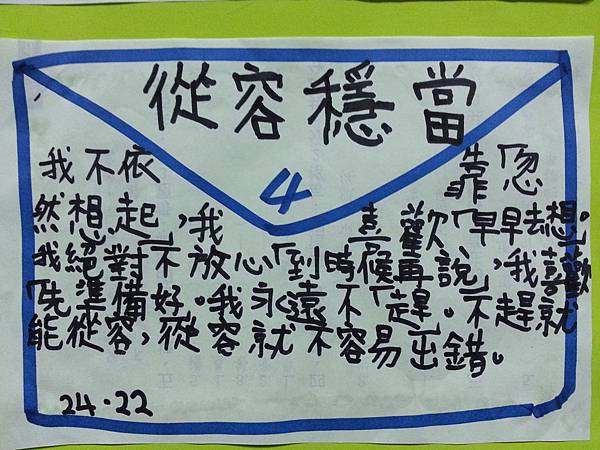 從容穩當
4
我不依靠「忽
然想起」，我喜歡「早早去想」。
我絕對不放心「到時候再說」，我喜歡
「先準備好。我永遠不「趕」。不趕就
能從容，從容就不容易出錯。
24.22